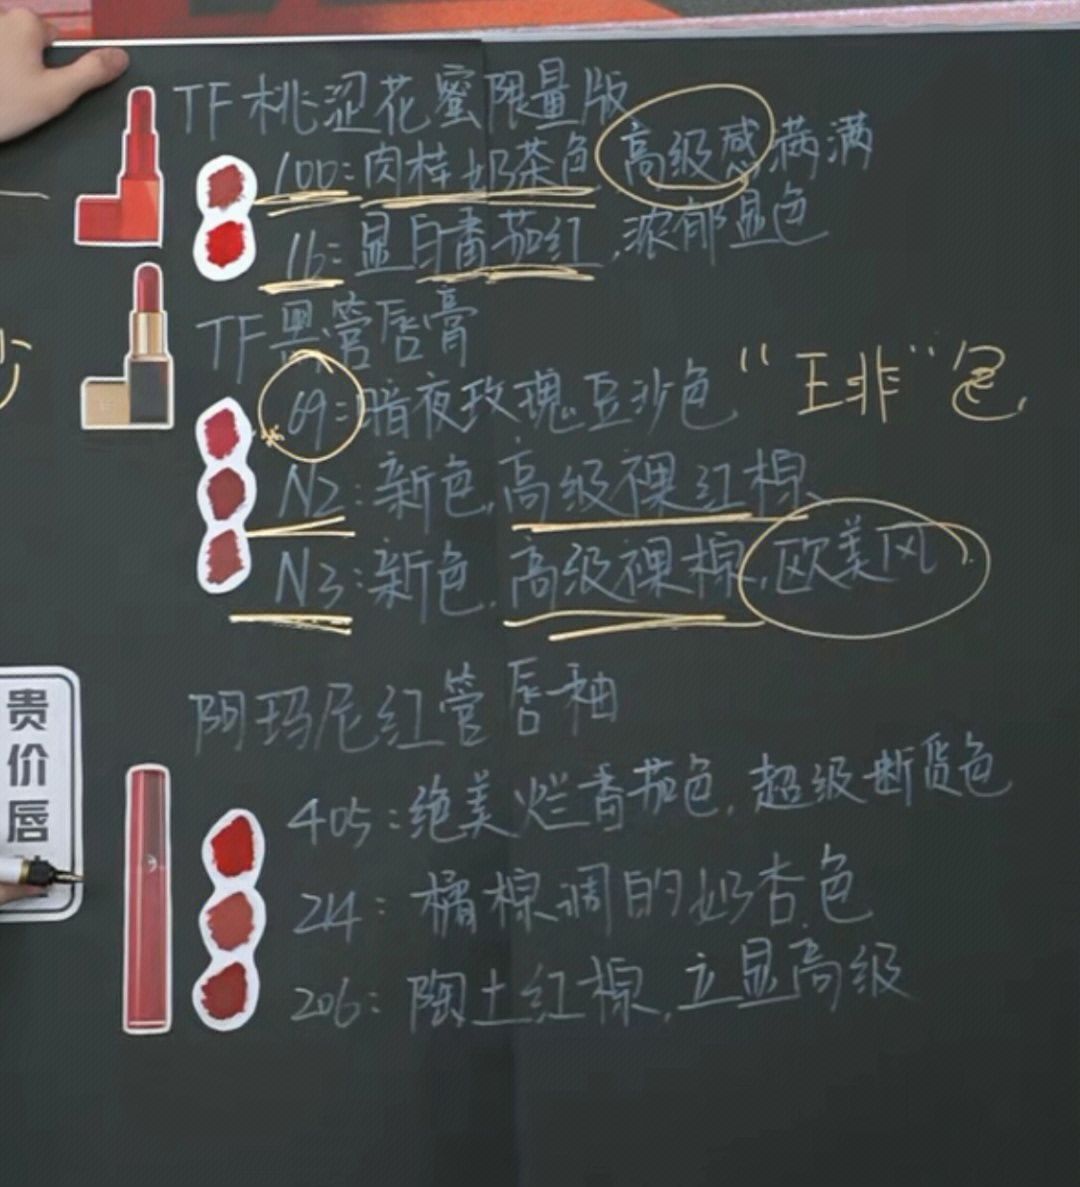 TF桃涩花蜜限量版
100:肉桂奶茶色 高级感满满
16:显白番茄红,浓郁显色
TF黑管唇膏
69:暗夜玫瑰豆沙色 "王非"色
N2:新色,高级裸红棕
N3:新色,高级裸棕,欧美风
阿玛尼红管唇釉
405:绝美烂番茄色,超级断货色
214:橘棕调的奶杏色
206:陶土红棕,立显高级
贵价唇